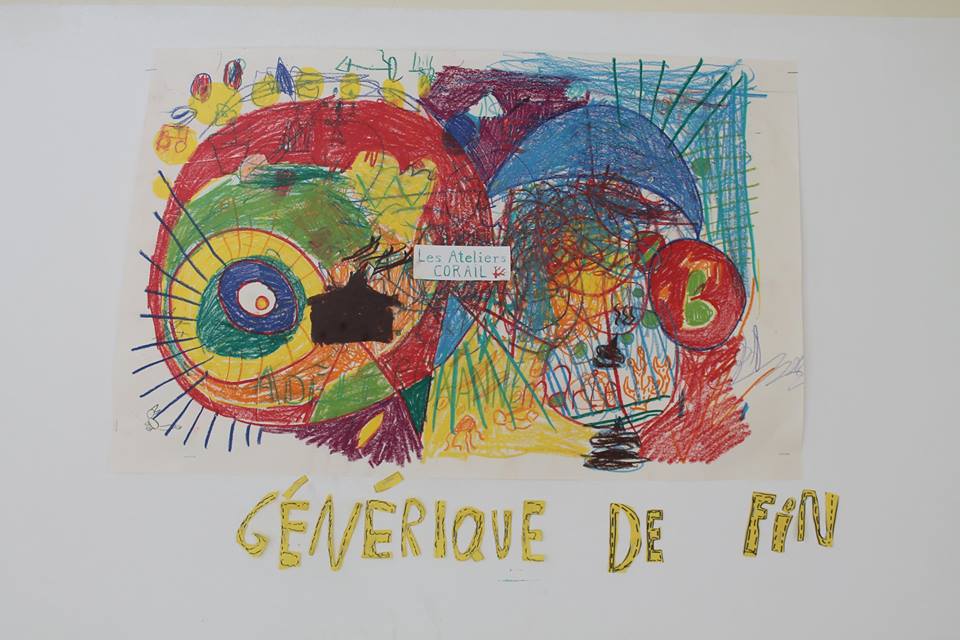 Les Ateliers
CORAIL
GÉNÉRIQUE DE FiN